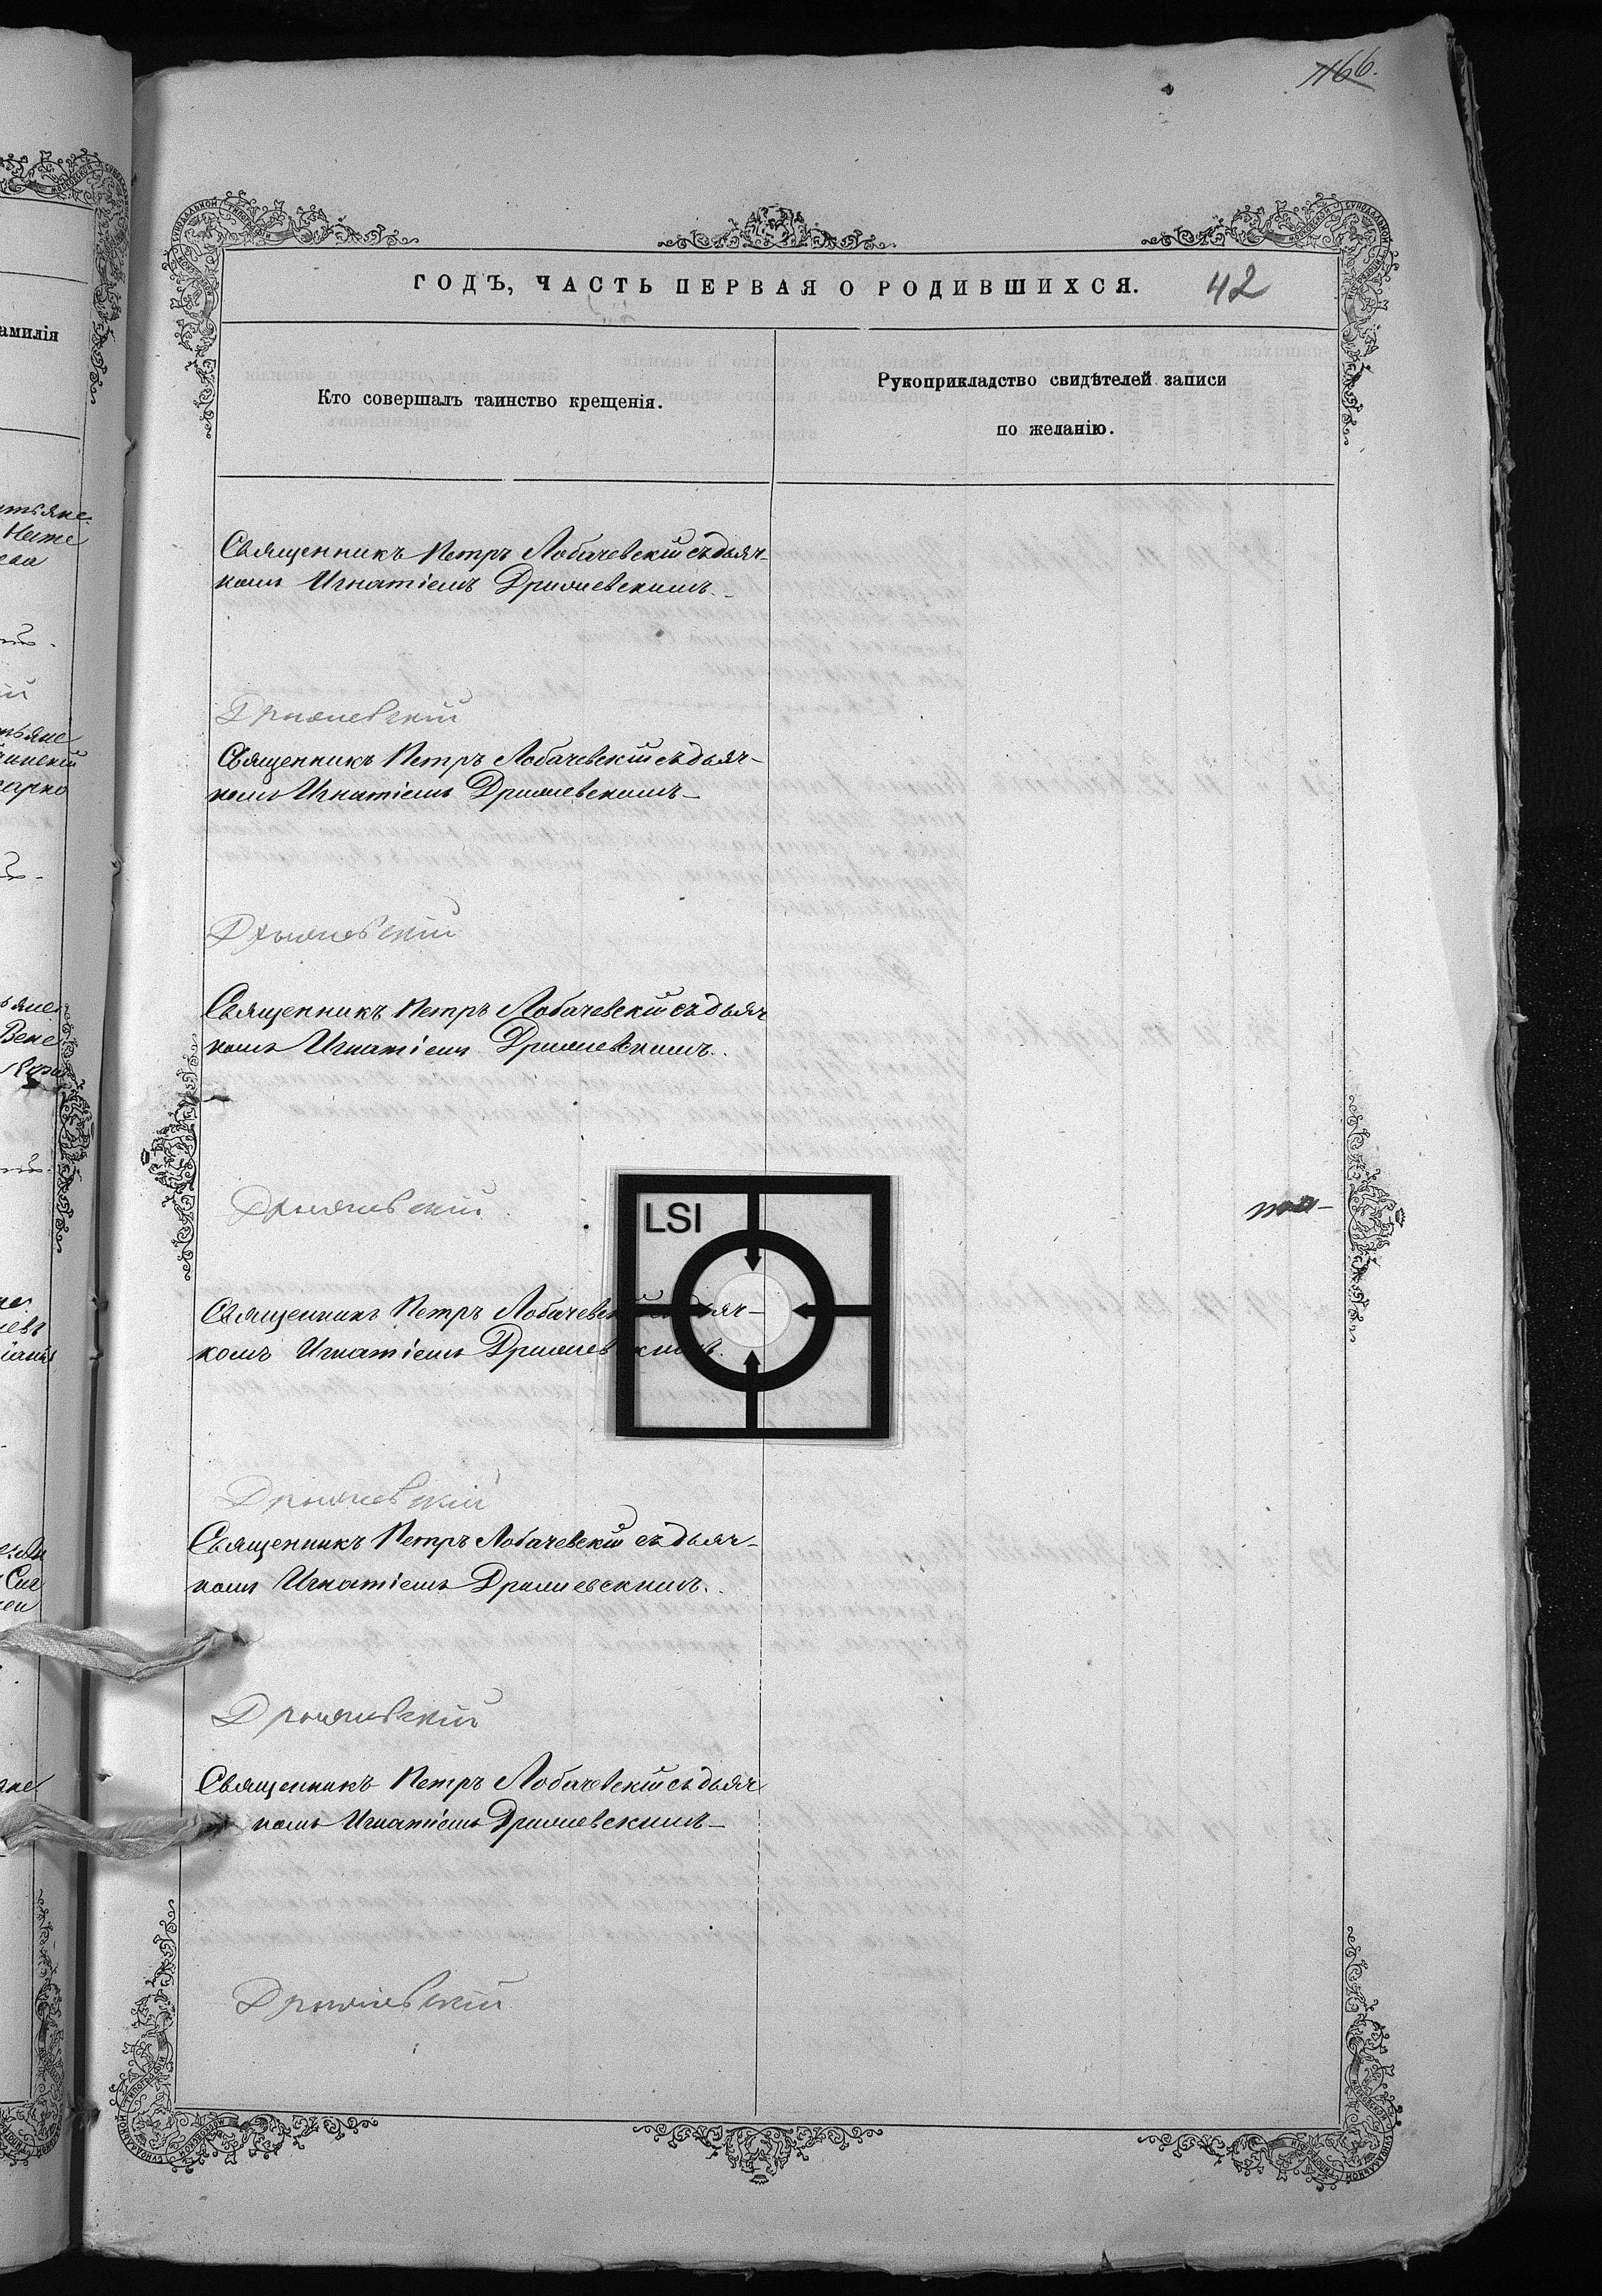 166.
ГОДЪ, ЧАСТЬ ПЕРВАЯ О РОДИВШИХСЯ. 42
амилія
Кто совершалъ таинство крещенія.
Рукоприкладство свидѣтелей записи
по желанію.
Священникъ Петръ Лобачевскій съ дьяч-
комъ Игнатіемъ Дрымлевскимъ.
Дрымлевскій
Священникъ Петръ Лобачевскій съ дьяч-
комъ Игнатіемъ Дрымлевскимъ
Дрымлевскій
Священникъ Петръ Лобачевскій съ дьяч
комъ Игнатіемъ Дрымлевскимъ.
Дрымлевскій
LSI
Священникъ Петръ Лобачевскій съ дьяч-
комъ Игнатіемъ Дрымлевскимъ.
Дрымлевскій
Священникъ Петръ Лобачевскій съ дьяч-
комъ Игнатіемъ Дрымлевскимъ.
Дрымлевскій
Священникъ Петръ Лобачевскій съ дьяч
комъ Игнатіемъ Дрымлевскимъ
Дрымлевскій